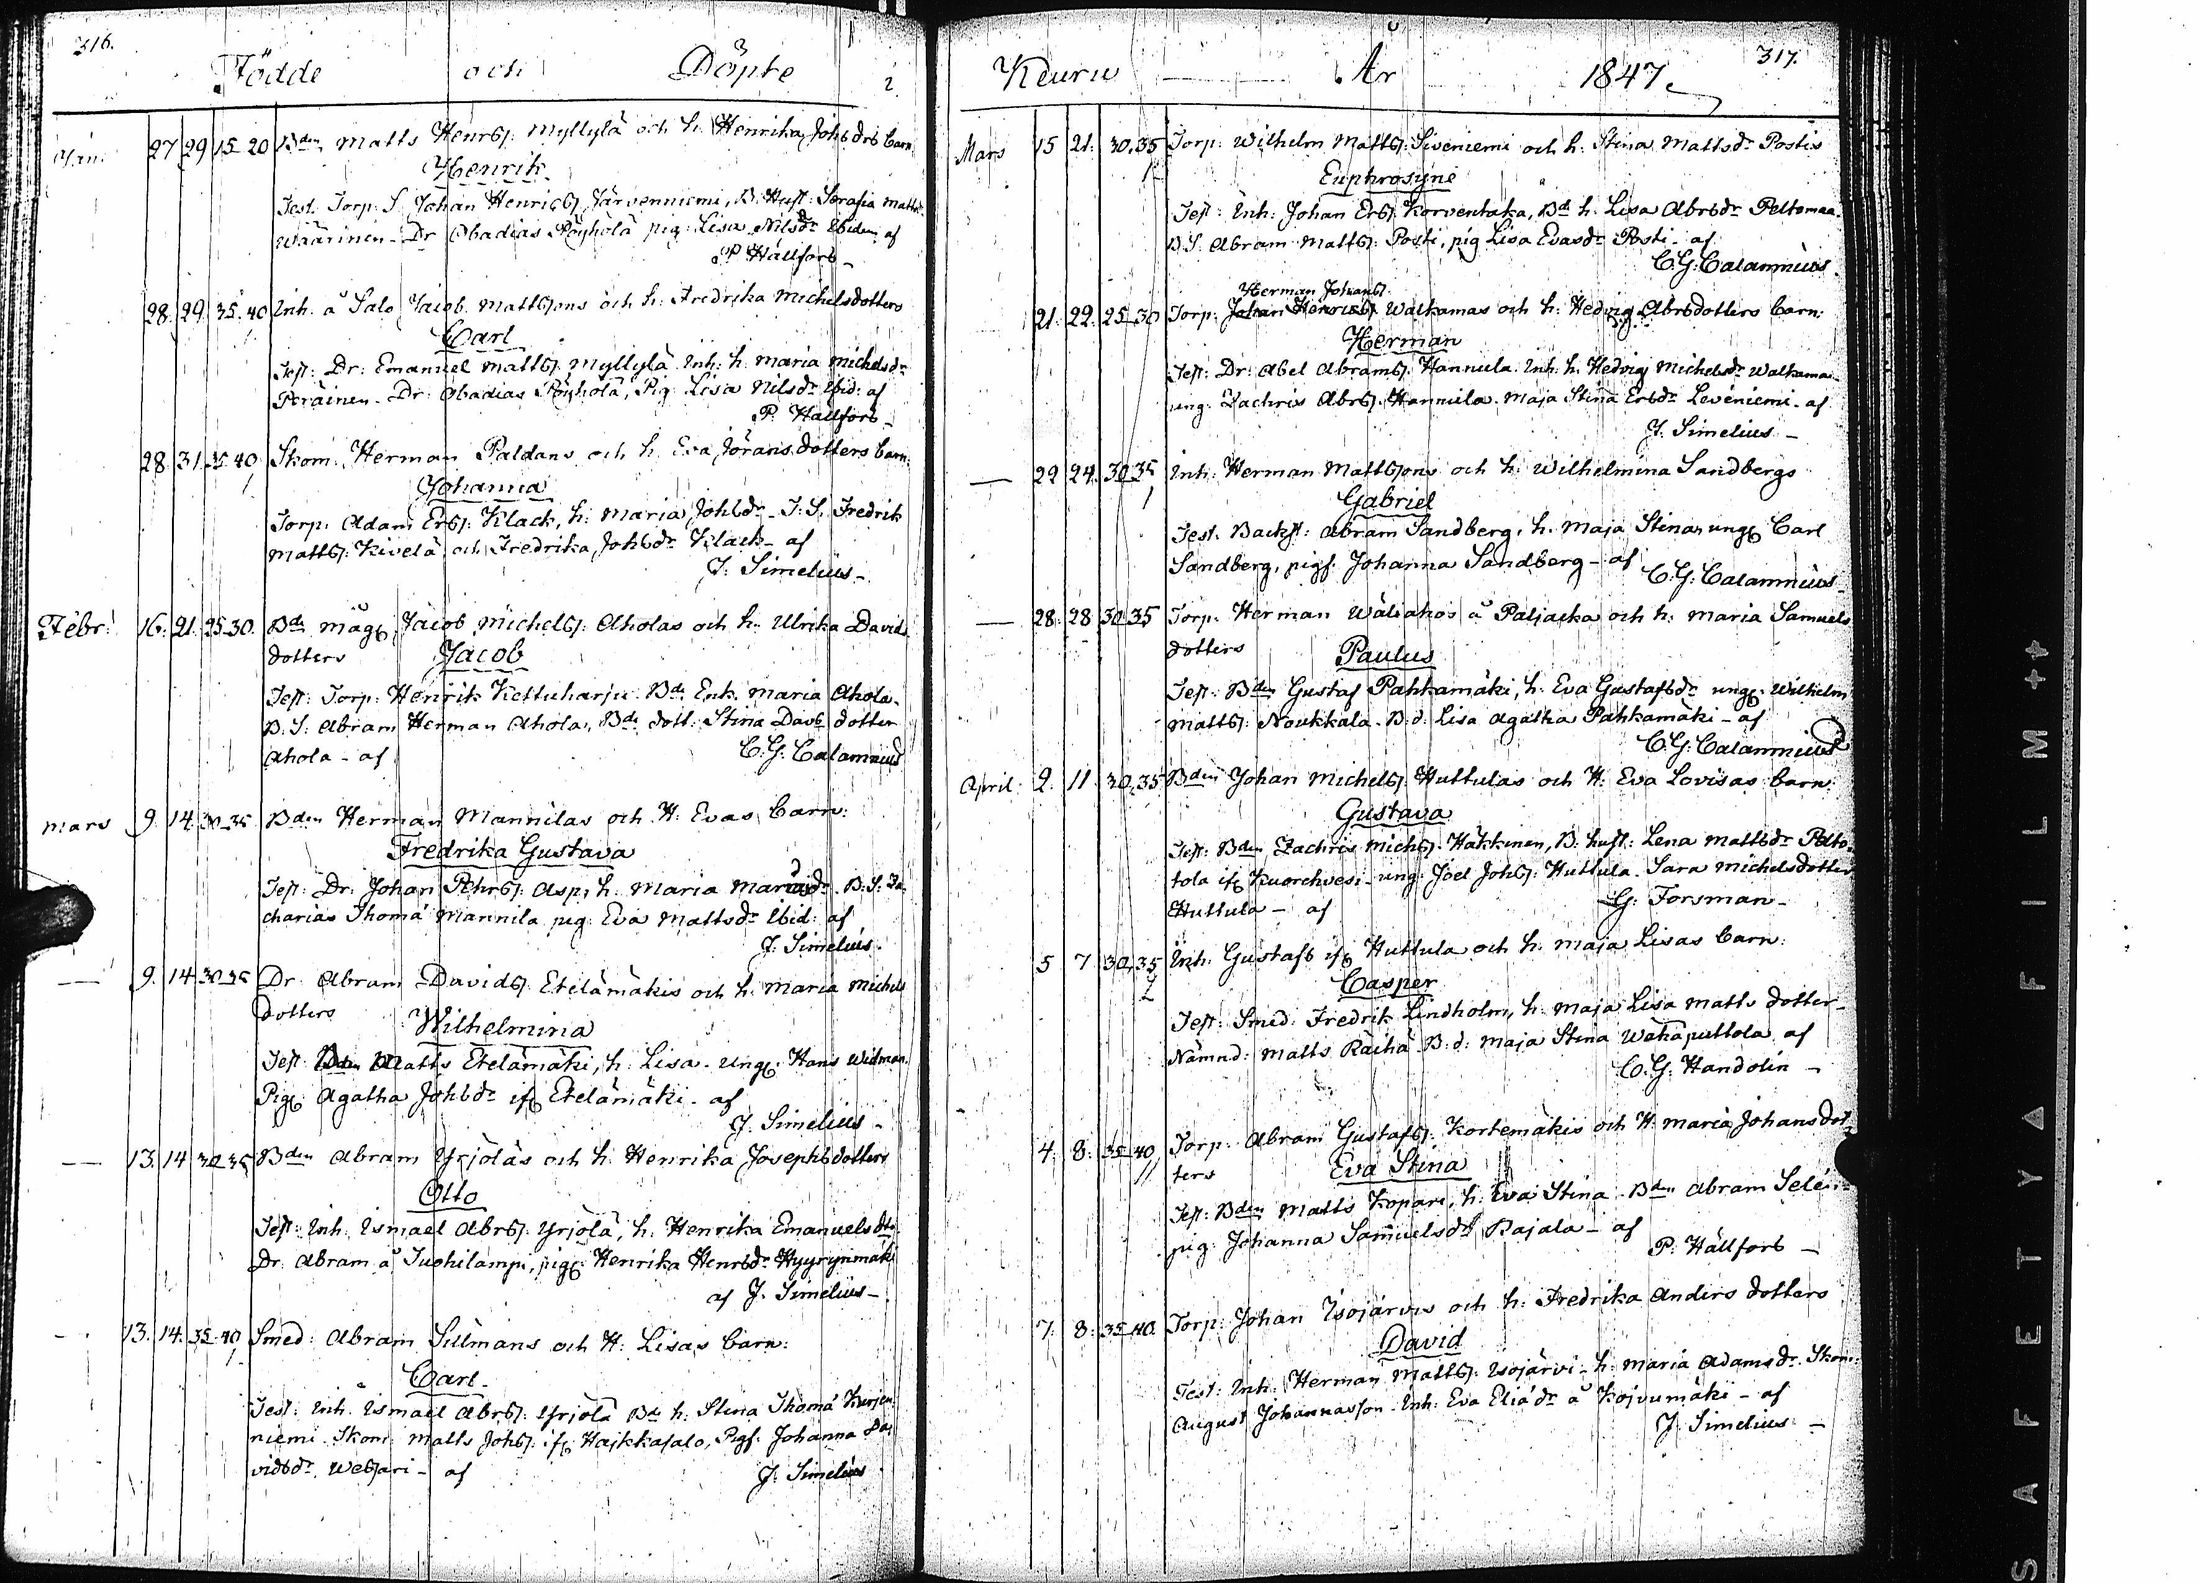 316.
Födde och Döpte
2.
Jan: 27 29 15-20 Bden Matts Henrsj: Myllylä och h. Henrika Johsdrs barn
Henrik
Test. Torp: S. Johan Henricsj Järvenniemi, B. Hust: Serafia Matts
Wäärinen - Dr Obadias Pöyhölä pig: Lisa Nilsdr Ibidem af
P. Hällfors -
28. 29. 35.40 Inh. å Salo Jacob Mattssons och h: Fredrika Michelsdotters
Carl
Test: Dr: Emanuel Mattsj. Myllylä Inh: h. Maria Michelsdr
Peräinen - Dr: Obadias Pöyhölä, Pig: Lisa Nilsdr Ibid: af
P. Hällfors -
28. 31. 35.40 Skom: Herman Paldans och h. Eva Jöransdotters barn:
Johanna
Torp: Adam Ersj: Klack, h: Maria Johsdr - T: S. Fredrik
Mattsj: Kivelä och Fredrika Johsdr Klack - af
J. Simelius -
Febr: 16. 21. 25-30. Bde måg Jacob Michelsj. Aholas och h. Ulrika Davids
dotters Jacob
Test: Torp: Henrik Kettuharju. Bde Enk. Maria Ahola.
B. S. Abram Herman Ahola, Bde dott: Stina Davs dotter
Ahola - af C. G. Calamnius
Mars 9. 14. 30-35 Bden Herman Mannilas och H. Evas barn:
Fredrika Gustava
Test: Dr. Johan Pehrsj. Asp, h. Maria Mariædr. B. S. Za
charias Thomæ Mannila pig: Eva Mattsdr Ibid: af
J. Simelius.
— 9. 14 30-35 Dr. Abram Davidsj. Etelämäkis och h. Maria Michels
dotters Wilhelmina
Test: Bden Matts Etelämäki, h. Lisa - Ung. Hans Widman.
Pig. Agatha Johsdr ifr Etelämäki - af
J. Simelius -
— 13. 14 30-35 Bden Abram Yrjöläs och h. Henrika Josephsdotters
Otto
Test: Inh. Ismael Abrsj. Yrjölä, h. Henrika Emanuelsdtr
Dr. Abram å Suohilampi, pig: Henrika Henrsdr Hyyrynmäki
af J. Simelius -
- 13. 14. 35-40 Smed: Abram Sillmans och H. Lisas barn:
Carl -
Test: Inh. Ismael Abrsj. Yrjölä Bde h. Stina Thomæ Kurjen
niemi. Skom: Matts Johsj. ifr Hajkkasalo, Pig. Johanna Da
vidsdr Wessari - af J. Simelius
317.
Keuru År 1847.
Mars 15 21. 30.35 Torp: Wilhelm Mattsj: Siveniemi och h. Stina Mattsdr Postis
Euphrosyne
Test: Inh: Johan Ersj. Korventaka, Bde h. Lisa Abrsdr Peltomaa.
B. S. Abram Mattsj: Posti, pig Lisa Evasdr Posti - af
C. G: Calamnius.
Herman Johansj.
21. 22. 25-30 Torp: Johan Henricsj. Walkamas och h. Hedvig Abrsdotters barn:
Herman
Test: Dr: Abel Abramsj. Hannula. Inh. h. Hedvig Michelsdr Walkama -
ung. Zachris Abrsj. Hannula. Maja Stina Ersdr Leveniemi - af
J. Simelius -
— 22 24. 30 35 Inh: Herman Mattssons och h: Wilhelmina Sandbergs
Gabriel
Test. Backst: Abram Sandberg, h. Maja Stina, ung. Carl
Sandberg, pig. Johanna Sandberg - af C. G: Calamnius -
— 28. 28 30.35 Torp. Herman Wäliahos å Paljacka och h. Maria Samuels
dotters Paulus
Test. Bden Gustaf Pahkamäki, h. Eva Gustafsdr ung. Wilhelm
Mattsj: Noukkala. B. d. Lisa Agatha Pahkamäki - af
C. G: Calamnius
April: 2. 11 30.35 Bden Johan Michelsj. Huttulas och H. Eva Lovisas barn:
Gustava
Test: Bden Zachris Michsj. Häkkinen, B. hust: Lena Mattsdr Pelto-
tola ifr Kuorehvesi - ung. Joel Johsj: Huttula. Sara Michelsdotter
Huttula - af G. Forsman -
5 7 30.35 Inh. Gustafs ifr Huttula och h. Maja Lisas barn:
Casper
Test: Smed. Fredrik Lindholm, h. Maja Lisa Matts dotter -
Nämnd: Matts Raiha - B: d: Maja Stina Wähäputtola af
C. G. Handolin -
4. 8. 35-40 Torp: Abram Gustafsj. Kortemäkis och H. Maria Johansdot-
ters Eva Stina
Test: Bden Matts Kopare, h. Eva Stina - Bden Abram Selén =
pig: Johanna Samuelsdr Rajala - af
P. Hällfors -
7. 8. 35-40. Torp: Johan Isojärvis och h: Fredrika Anders dotters
David
Test: Inh. Herman Mattsj. Isojärvi - h. Maria Adamsdr. Skom:
August Johannasson. Inh: Eva Eliædr å Kojvumäki - af
J. Simelius -
SAFETY FILM